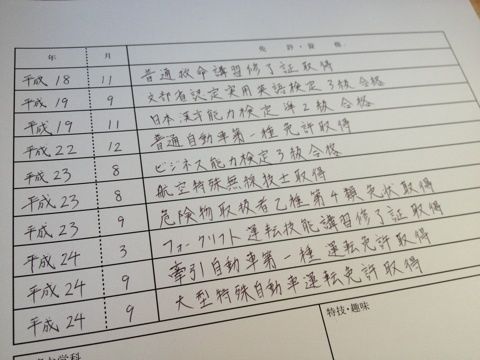 年 月 免許・資格
平成18 11 普通救命講習修了証取得
平成19 9 文部省認定実用英語検定3級合格
平成19 11 日本漢字能力検定準2級合格
平成22 12 普通自動車第一種免許取得
平成23 8 ビジネス能力検定3級合格
平成23 8 航空特殊無線技士取得
平成23 9 危険物取扱者乙種第4類免状取得
平成24 3 フォークリフト運転技能講習修了証取得
平成24 9 牽引自動車第一種運転免許取得
平成24 9 大型特殊自動車運転免許取得
特技・趣味
学科